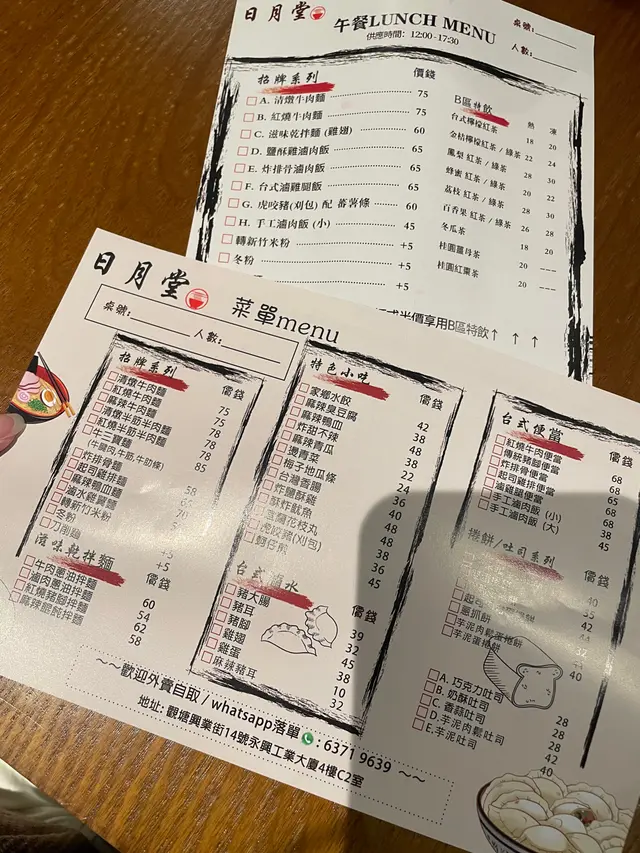 日月堂
午餐LUNCH MENU
供應時間: 12:00 -17:30
桌號:
人數:
招牌系列 價錢
A. 清燉牛肉麵 75
B. 紅燒牛肉麵 75
C. 滋味乾拌麵 (雞翅) 60
D. 鹽酥雞滷肉飯 65
E. 炸排骨滷肉飯 65
F. 台式滷雞腿飯 65
G. 虎咬豬(刈包) 配 蕃薯條 60
H. 手工滷肉飯 (小) 45
轉新竹米粉 +5
冬粉 +5
+5
B區特飲 熱 凍
台式檸檬紅茶 18 20
金桔檸檬紅茶 / 綠茶 22 24
鳳梨 紅茶 / 綠茶 28 30
蜂蜜 紅茶 / 綠茶 20 22
荔枝 紅茶 / 綠茶 28 30
百香果 紅茶 / 綠茶 26 28
冬瓜茶 18 20
桂圓薑母茶 20 ---
桂圓紅棗茶 20 ---
半價享用B區特飲↑ ↑ ↑
日月堂
菜單menu
桌號:
人數:
招牌系列 價錢
清燉牛肉麵 75
紅燒牛肉麵 75
麻辣牛肉麵 78
清燉半筋半肉麵 78
紅燒半筋半肉麵 78
牛三寶麵 85
(牛腱肉,牛筋,牛肋條)
炸排骨麵 58
起司雞排麵
麻辣鴨血麵
滷水雞寶麵
轉新竹米粉
冬粉 +5
刀削麵 +5
滋味乾拌麵 價錢
牛肉蔥油拌麵 60
滷肉蔥油拌麵 54
紅燒豬腳拌麵 62
麻辣餛飩拌麵 58
特色小吃 價錢
家鄉水餃 42
麻辣臭豆腐 38
麻辣鴨血 48
炸甜不辣 38
麻辣青瓜 22
燙青菜 24
梅子地瓜條 36
台灣香腸 40
炸鹽酥雞 48
酥炸魷魚 48
花枝丸 38
虎咬豬(刈包) 36
蚵仔煎 45
台式滷水 價錢
豬大腸 39
豬耳 32
豬腳 45
雞翅 38
雞蛋 10
麻辣豬耳 32
台式便當 價錢
紅燒牛肉便當 68
傳統豬腳便當 68
炸排骨便當 65
起司雞排便當 68
滷雞腿便當 65
手工滷肉飯 (小) 38
手工滷肉飯 (大) 45
捲餅/吐司系列 價錢
40
35
蔥抓餅
芋泥肉鬆蛋捲餅
芋泥蛋捲餅 40
A. 巧克力吐司 28
B. 奶酥吐司 28
C. 香蒜吐司 28
D. 芋泥肉鬆吐司 42
E. 芋泥吐司 40
～～歡迎外賣自取 / whatsapp落單 : 6371 9639 ～～
地址: 觀塘興業街14號永興工業大廈4樓C2室